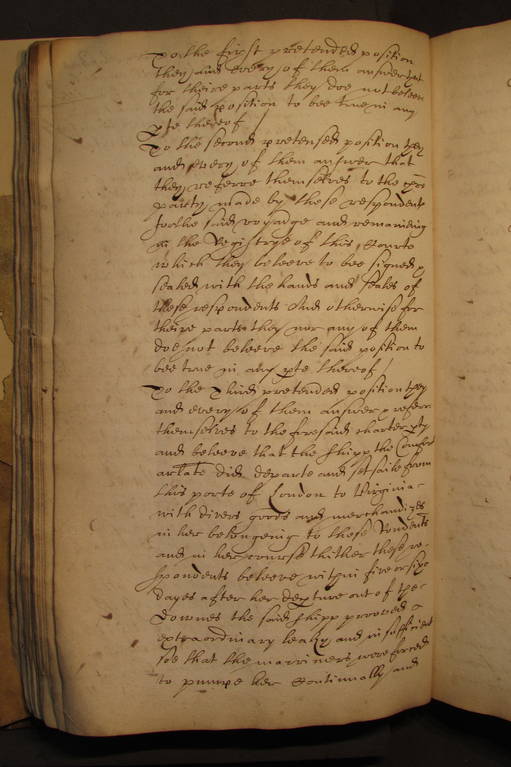 To the first pretended position
they and every of them answer that
for theire parts they doe not beleeve
the said position to bee true in any
pte thereof
To the second pretended position they
and every of them answer that
they referre themselves to the
party made by these respondents
for the said voyadge and remaineing
in the Registrye of this Courte
which they beleeve to bee signed
sealed with the hands and seales of
these respondents And otherwise for
theire parts they nor any of them
doe not beleeve the said position to
bee true in any pte thereof
To the Third pretended position they
and every of them answer & referre
themselves to the foresaid charter pty
and beleeve that the shipp the Comfort
arlate did departe and sett saile from
this porte of London to Virginia
with divers goods and merchandizes
in her belonging to these rondents
and in her course thither these re-
spondents beleeve within five or sixe
dayes after her depture out of the
Downes the said shipp prooved
extraordinary leaky and insufficient
soe that the marriners were forced
to pumpe her Continually and